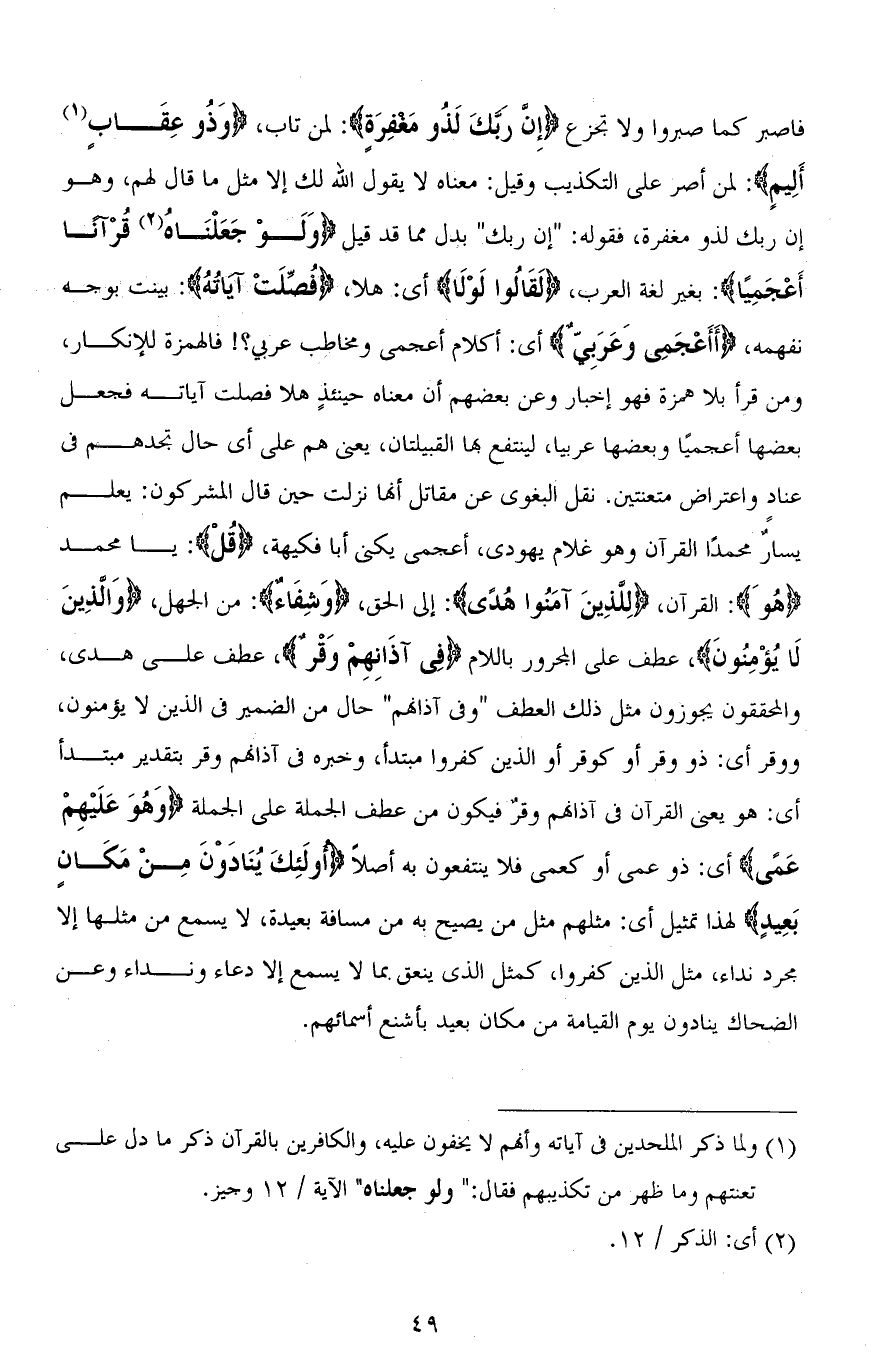 فاصبر كما صبروا ولا تجزع ﴿إِنَّ رَبَّكَ لَذُو مَغْفِرَةٍ﴾: لمن تاب، ﴿وَذُو عِقَـــابٍ(١)
أَلِيمٍ﴾: لمن أصر على التكذيب وقيل: معناه لا يقول الله لك إلا مثل ما قال لهم، وهــو
إن ربك لذو مغفرة، فقوله: "إن ربك" بدل مما قد قيل ﴿وَلَـــوْ جَعَلْنَـــاهُ(٢) قُرْآنًــا
أَعْجَمِيًا﴾: بغير لغة العرب، ﴿لَقَالُوا لَوْلَا﴾ أى: هلا، ﴿فُصِّلَتْ آيَاتُهُ﴾: بينت بوجــه
نفهمه، ﴿أَأَعْجَمِى وَعَرَبِيٌّ﴾ أى: أكلام أعجمى ومخاطب عربي؟! فالهمزة للإنكــار،
ومن قرأ بلا همزة فهو إخبار وعن بعضهم أن معناه حينئذٍ هلا فصلت آياتــه فجعــل
بعضها أعجميًا وبعضها عربيا، لينتفع بها القبيلتان، يعنى هم على أى حال تجدهـــم فى
عنادٍ واعتراض متعنتين. نقل البغوى عن مقاتل أنها نزلت حين قال المشركون: يعلـــم
يسارٌ محمدًا القرآن وهو غلام يهودى، أعجمى يكنى أبا فكيهة، ﴿قُلْ﴾: يـــا محمــد
﴿هُوَ﴾: القرآن، ﴿لِلَّذِينَ آمَنُوا هُدًى﴾: إلى الحق، ﴿وَشِفَاءٌ﴾: من الجهل، ﴿وَالَّذِينَ
لَا يُؤْمِنُونَ﴾، عطف على المجرور باللام ﴿فِى آذَانِهِمْ وَقْرٌ﴾، عطف علـــى هــدى،
والمحققون يجوزون مثل ذلك العطف "وفى آذانهم" حال من الضمير فى الذين لا يؤمنون،
ووقر أى: ذو وقر أو كوقر أو الذين كفروا مبتدأ، وخبره فى آذانهم وقر بتقدير مبتــدأ
أى: هو يعنى القرآن فى آذانهم وقرٌ فيكون من عطف الجملة على الجملة ﴿وَهُوَ عَلَيْهِمْ
عَمًى﴾ أى: ذو عمى أو كعمى فلا ينتفعون به أصلاً ﴿أُولَئِكَ يُنَادَوْنَ مِـــنْ مَكَــانٍ
بَعِيدٍ﴾ لهذا تمثيل أى: مثلهم مثل من يصيح به من مسافة بعيدة، لا يسمع من مثلــها إلا
مجرد نداء، مثل الذين كفروا، كمثل الذى ينعق بما لا يسمع إلا دعاء ونــــداء وعــن
الضحاك ينادون يوم القيامة من مكان بعيد بأشنع أسمائهم.
(١) ولما ذكر الملحدين فى آياته وأنهم لا يخفون عليه، والكافرين بالقرآن ذكر ما دل علـــى
تعنتهم وما ظهر من تكذيبهم فقال:" ولو جعلناه" الآية / ١٢ وجيز.
(٢) أى: الذكر / ١٢.
٤٩